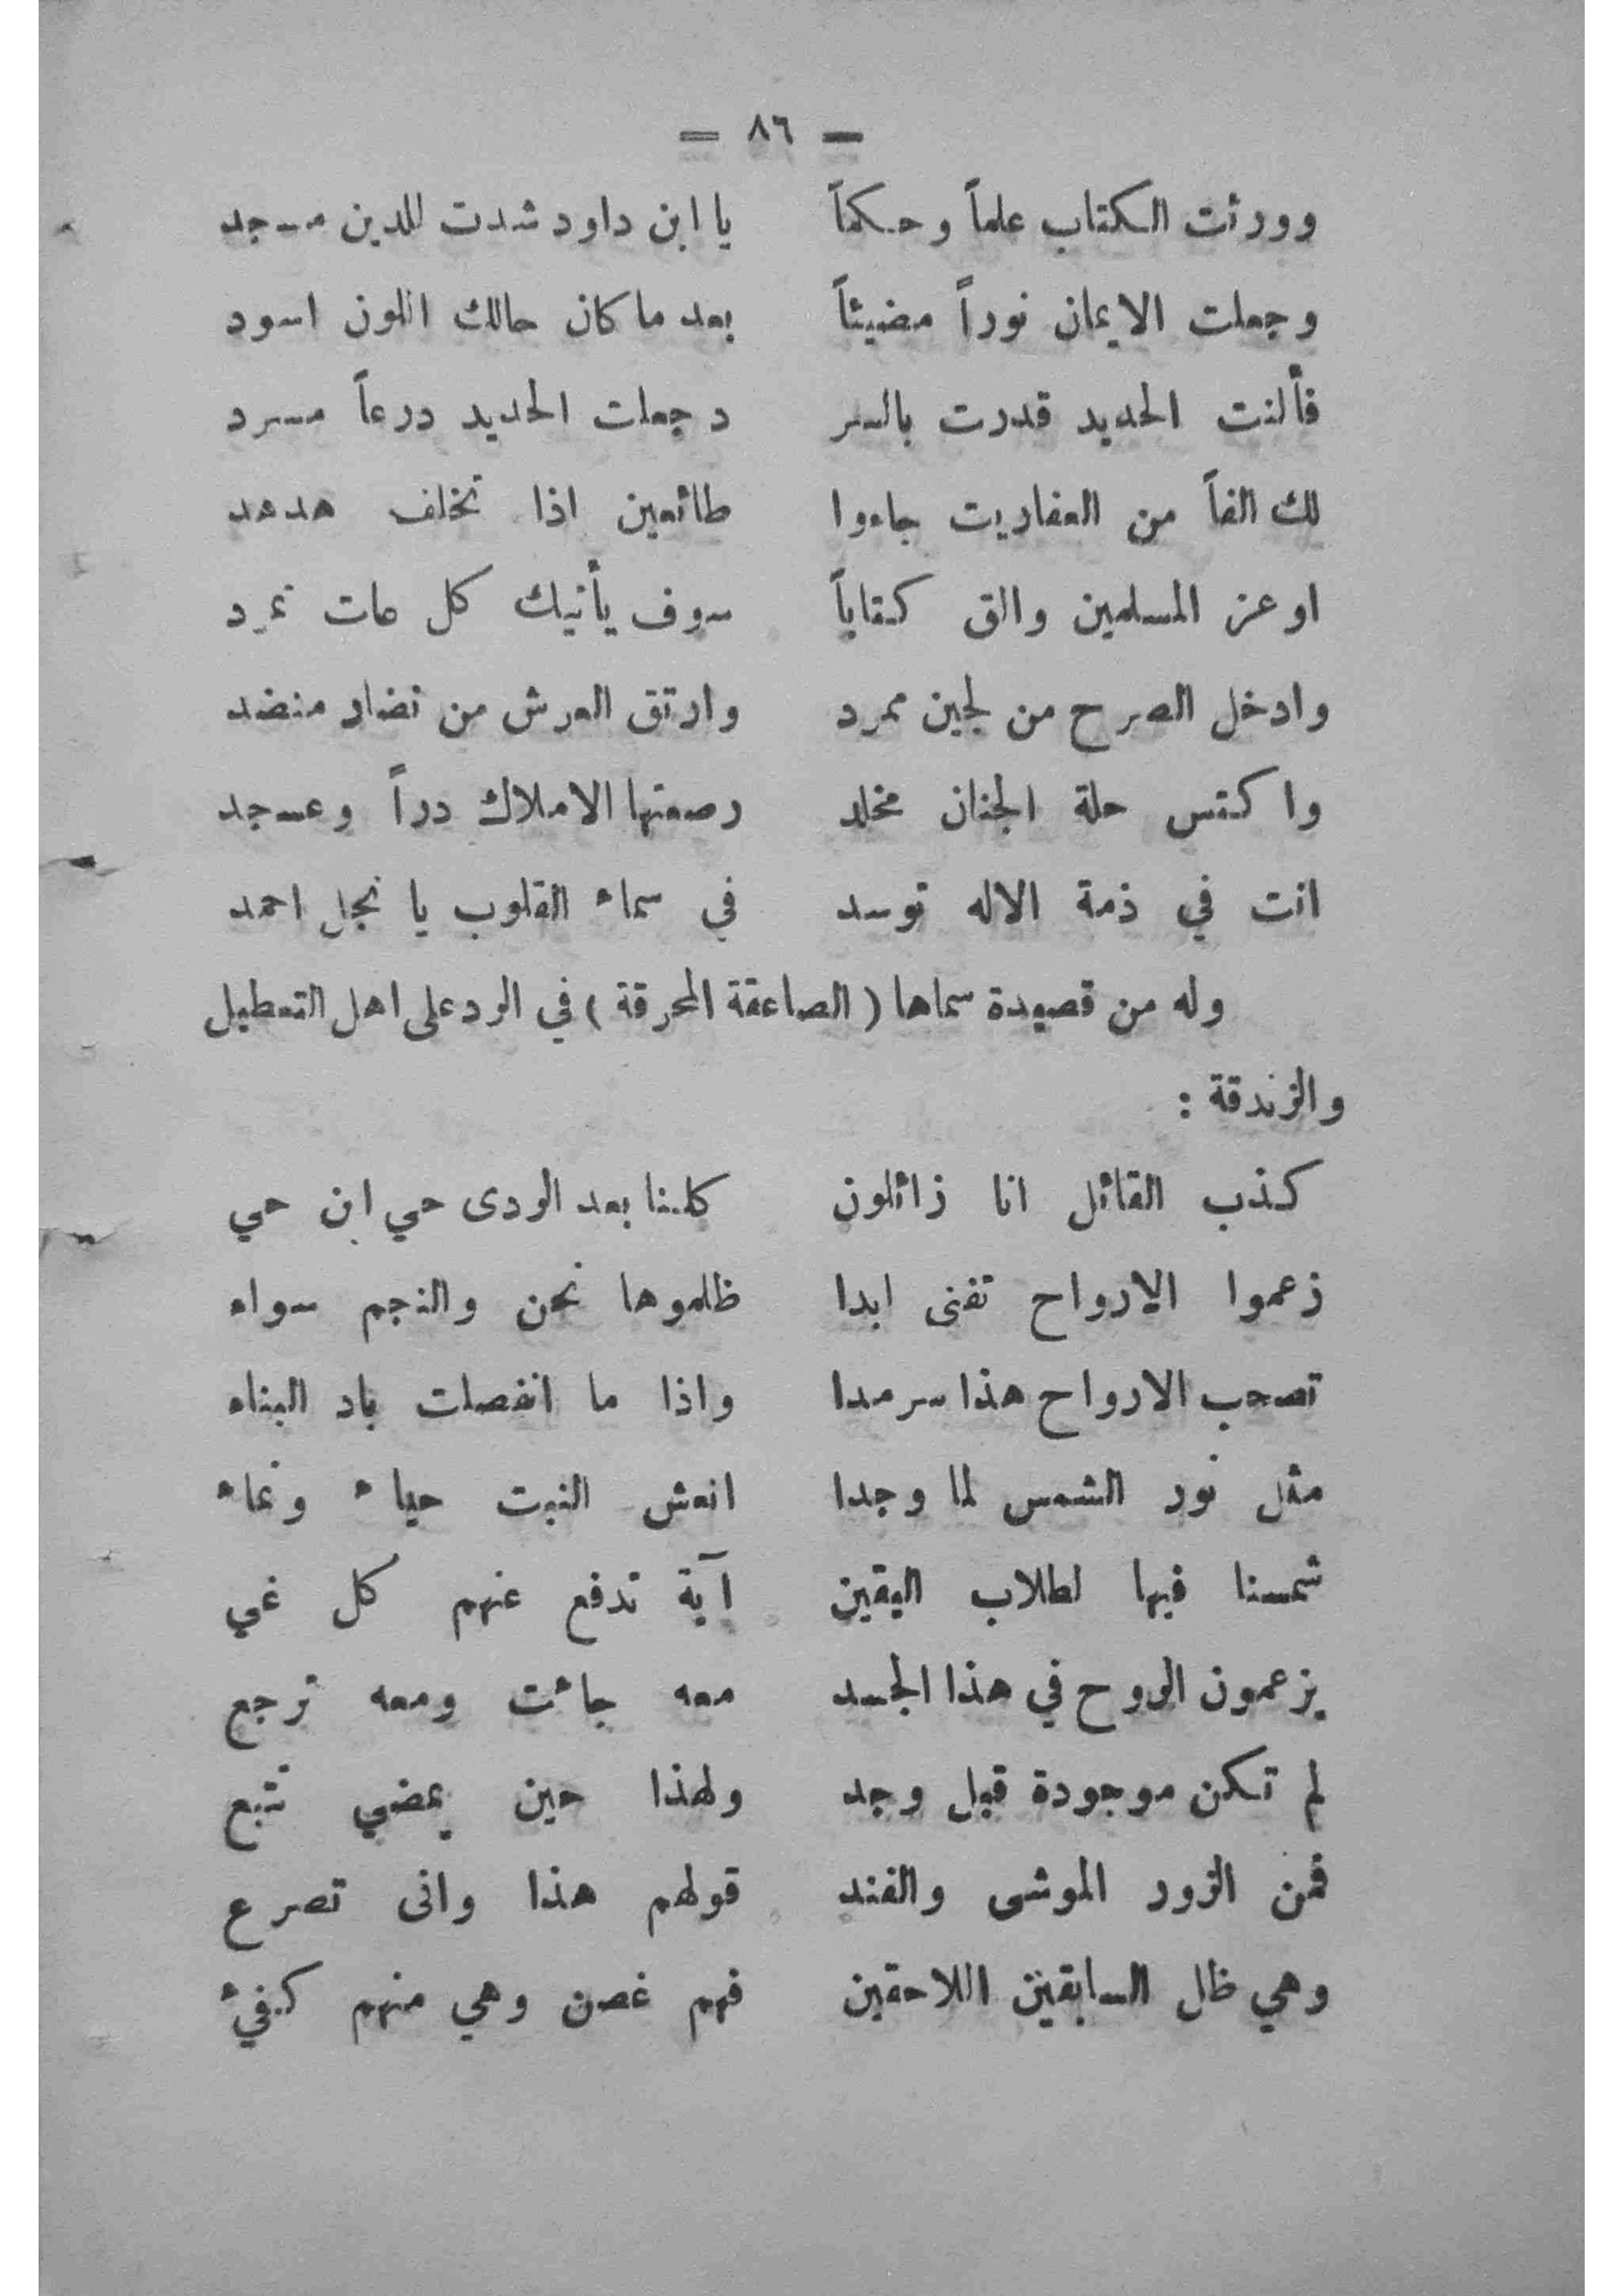 — ٨٦ =
وورثت الكتاب علماً وحكماً يا ابن داود شدت للدين مسجد
وجعلت الايمان نوراً مضيئاً بعد ما كان حالك اللون اسود
فألنت الحديد قدرت بالسر د جعلت الحديد درعاً مسرد
لك الفاً من العفاريت جاءوا طائعين اذا تخلف هدهد
اوعز المسلمين والق كتاباً سوف يأتيك كل عات تمرد
وادخل الصرح من لجين ممرد وارتق العرش من نضار منضد
واكتس حلة الجنان مخلد رصعتها الاملاك دراً وعسجد
انت في ذمة الاله توسد في سماء القلوب يا نجل احمد
وله من قصيدة سماها (الصاعقة المحرقة) في الرد على اهل التعطيل
والزندقة :
كذب القائل انا زائلون كلنا بعد الردى حي ابن حي
زعموا الارواح تفنى ابدا ظلموها نحن والنجم سواء
تصحب الارواح هذا سرمدا واذا ما انفصلت باد البناء
مثل نور الشمس لما وجدا انعش النبت حياء ونماء
شمسنا فيها لطلاب اليقين آية تدفع عنهم كل غي
يزعمون الروح في هذا الجسد معه جاءت ومعه ترجع
لم تكن موجودة قبل وجد ولهذا حين يمضي تتبع
فمن الزور الموشى والفند قولهم هذا وانى تصرع
وهي ظل السابقين اللاحقين فهم غصن وهي منهم كفيء